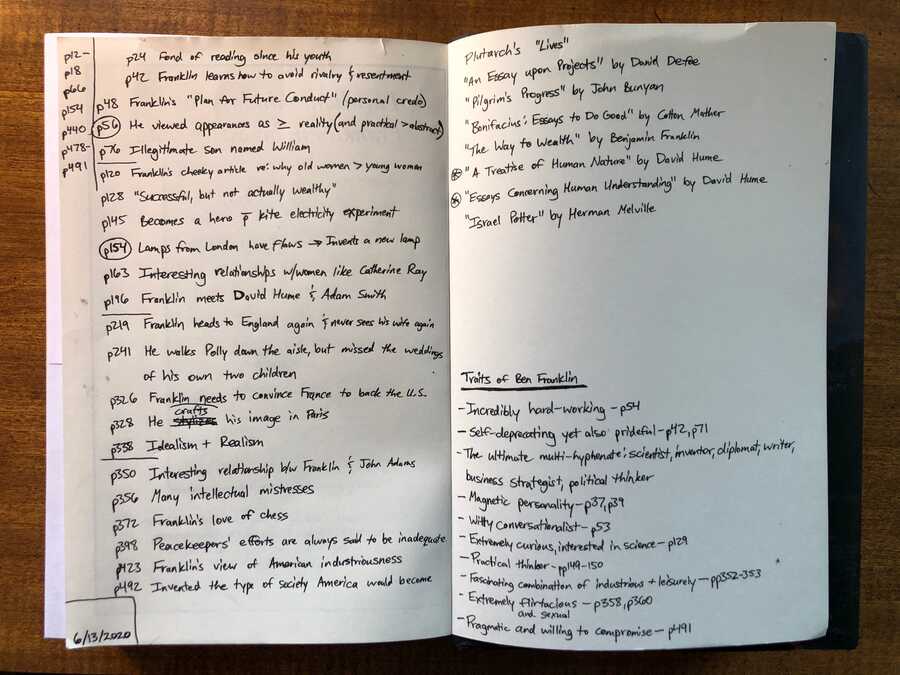 p12-
p18
p66
p154
p440
p478-
p491
p24 Fond of reading since his youth
p42 Franklin learns how to avoid rivalry & resentment
p48 Franklin's "Plan for Future Conduct" (personal credo)
p56 He viewed appearances as ≥ reality (and practical > abstract)
p76 Illegitimate son named William
p120 Franklin's cheeky article re: why old women > young women
p128 "Successful, but not actually wealthy"
p145 Becomes a hero p̄ kite electricity experiment
p154 Lamps from London have flaws → Invents a new lamp
p163 Interesting relationships w/women like Catherine Ray
p196 Franklin meets David Hume & Adam Smith
p219 Franklin heads to England again & never sees his wife again
p241 He walks Polly down the aisle, but missed the weddings
of his own two children
p326 Franklin needs to convince France to back the U.S.
crafts
p328 He stylizes his image in Paris
p338 Idealism + Realism
p350 Interesting relationship b/w Franklin & John Adams
p356 Many intellectual mistresses
p372 Franklin's love of chess
p398 Peacekeepers' efforts are always said to be inadequate
p423 Franklin's view of American industriousness
p492 Invented the type of society America would become
6/13/2020
Plutarch's "Lives"
"An Essay upon Projects" by Daniel Defoe
"Pilgrim's Progress" by John Bunyan
"Bonifacius: Essays to Do Good" by Cotton Mather
"The Way to Wealth" by Benjamin Franklin
"A Treatise of Human Nature" by David Hume
"Essays Concerning Human Understanding" by David Hume
"Israel Potter" by Herman Melville
Traits of Ben Franklin
- Incredibly hard-working - p54
- Self-deprecating yet also prideful - p42, p71
- The ultimate multi-hyphenate: scientist, inventor, diplomat, writer,
business strategist, political thinker
- Magnetic personality - p37, p39
- Witty conversationalist - p53
- Extremely curious, interested in science - p129
- Practical thinker - pp149-150
- Fascinating combination of industrious + leisurely - pp352-353
- Extremely flirtacious - p358, p360
and sexual
- Pragmatic and willing to compromise - p491